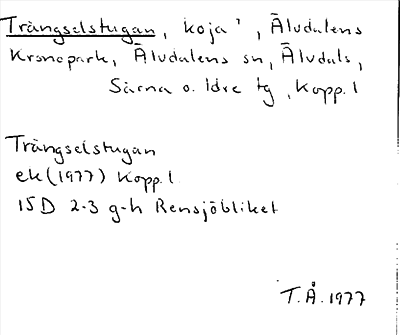 Trängselstugan, koja', Älvdalens
Kronopark, Älvdalens sn, Älvdals,
Särna o. Idre tg, Kopp. l
Trängselstugan
ek (1977) Kopp. l
15D 2-3 g-h Rensjöbliket
T.Å. 1977